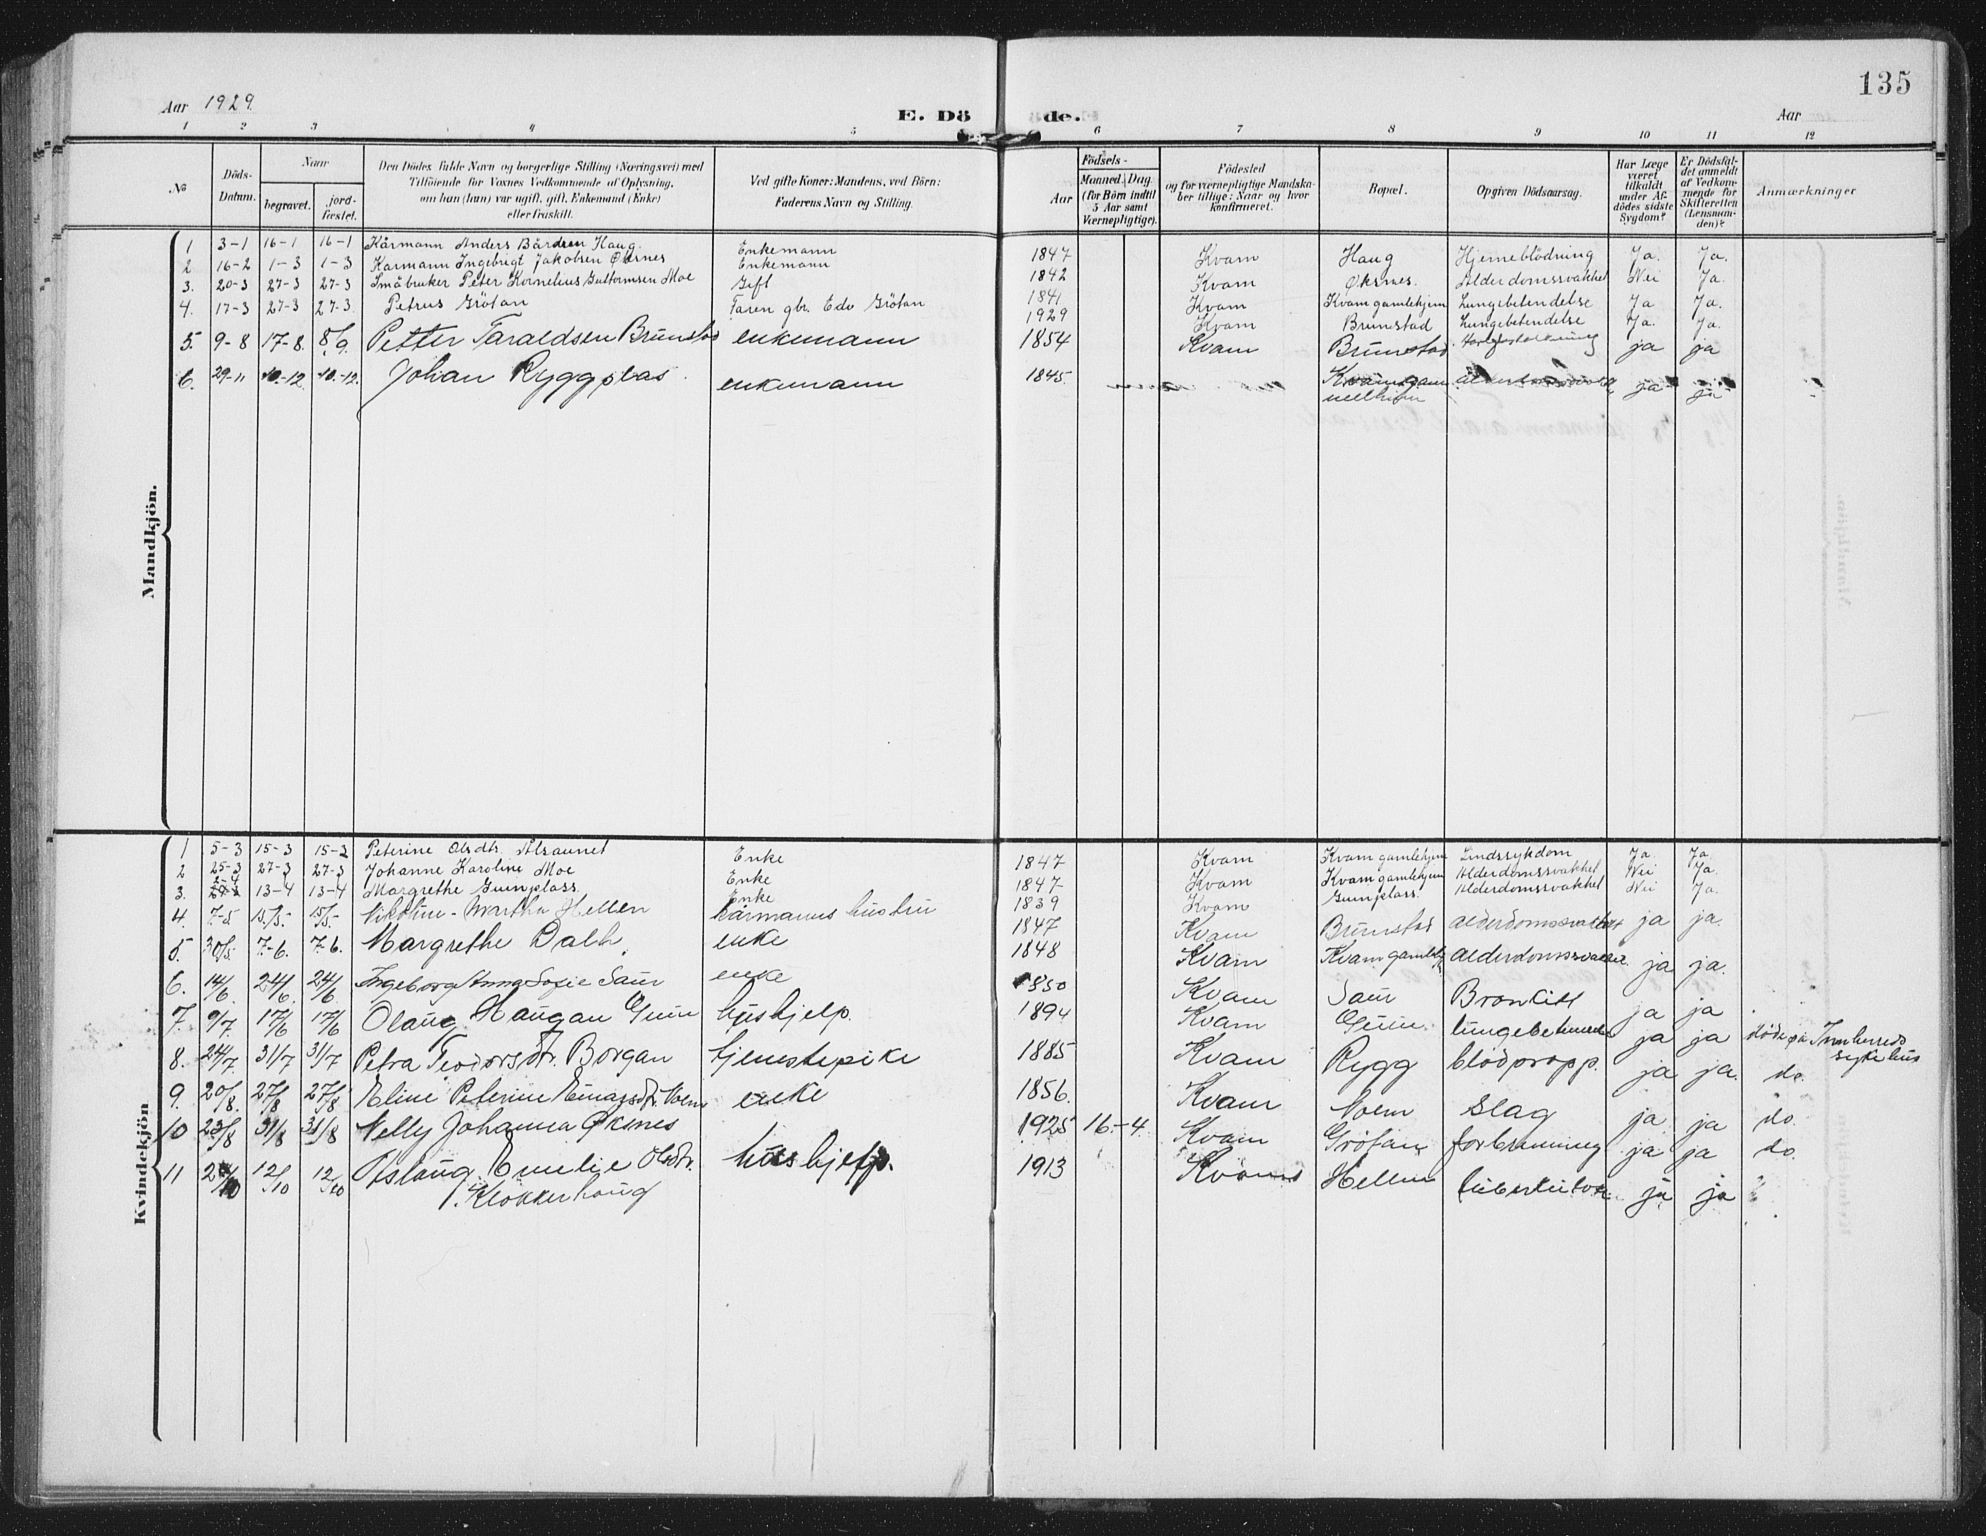 135
Aar 1929.
E. Dö de.
Aar
1 2 3 4 5 6 7 8 9 10 11 12
No
Döds-Datum.
Naar
begravet.
jord-fæstet.
Den Dödes fulde Navn og borgerlige Stilling (Næringsvei) med
Tilföiende for Voxnes Vedkommende af Oplysning,
om han (hun) var ugift, gift, Enkemand (Enke)
eller fraskilt.
Ved gifte Koner: Mandens, ved Börn:
Faderens Navn og Stilling.
Födsels-
Aar
Maaned. Dag
(for Börn indtil
5 Aar samt
Værnepligtige).
Födested
og for værnepligtige Mandska-
ber tillige: Naar og hvor
konfirmeret.
Bopæl.
Opgiven Dödsaarsag.
Har Læge
været
tilkaldt
under Af-
dödes sidste
Sygdom?
Er Dödsfal-
det anmeldt
af Vedkom-
mende for
Skifteretten
(Lensman-
den)?
Anmærkninger
Mandkjön.
1 3-1 16-1 16-1 Kårmann Anders Bårdsen Haug. Enkemann 1847 Kvam Haug Hjerneblödning Ja. Ja.
2 16-2 1-3 1-3 Kårmann Ingebrigt Jakobsen Øksnes Enkemann 1842 Kvam Øksnes. Alderdomssvakhet Nei Ja.
3. 20-3 27-3 27-3 Småbruker Peter Kornelius Guttormsen Moe Gift 1841 Kvam Kvam gamlehjem Lungebetendelse Ja Ja.
4. 17-3 27-3 27-3. Petrus Grötan Faren gbr. Edv Grötan 1929 Kvam Brunstad Lungebetendelse Ja. Ja.
5. 9-8 17-8. 8/9. Petter Taraldsen Brunstad enkemann 1854 Kvam Brunstad ja ja
6. 29-11 10-12. 10-12. Johan Ryggplas. enkemann 1845. ja ja
Kvindekjön
1 5-3 15-3 15-3 Peterine Olsdtr. Enke 1847 Kvam Kvam gamlehjem Lindssykdom Ja. Ja.
2 25-3 27-3 27-3 Johanne Karoline Moe Enke 1847 Kvam Kvam gamlehjem Alderdomssvakhet Nei Ja.
3. 2-4 13-4 13-4 Margrethe Guinplass. Enke 1839 Kvam Guinplass. Alderdomssvakhet Nei Ja.
4. 7-5 15/5. 15/5. Nikoline-Martha Hellem kårmanns hustru 1847 Kvam Brunstad alderdomssvakhet ja ja.
5. 30/5. 7-6. 7-6. Margrethe Dalh enke 1848 Kvam Kvam gamlehj. alderdomssvakhet. ja ja.
6. 14/6. 24/6. 24/6. Ingeborg Anna Sofie Saur enke 1850 Kvam Saur Bronkitt ja ja.
7. 9/7 17/6 17/6 Olaug Haugan Guin hushjelp. 1894 Kvam Guin. lungebetendelse ja ja döde på Innherreds
sykehus
8. 24/7 31/7 31/7 Petra Teodorsdtr. Borgan tjenestepike 1885 Kvam Rygg blodpropp. ja ja. do.
9. 20/8. 27/8 27/8 Eline Peterine Einarsdtr. enke 1856. Kvam slag ja ja do.
10 23/8 31/8 31/8 Nelly Johanna Øksnes 1925 16-4. Kvam Grötan forbrenning ja ja do.
11 12/10 12/10 Aslaug Emelie Olsdtr. hushjelp. 1913 Kvam Hellem tuberkulose ja ja
Klokkerhaug